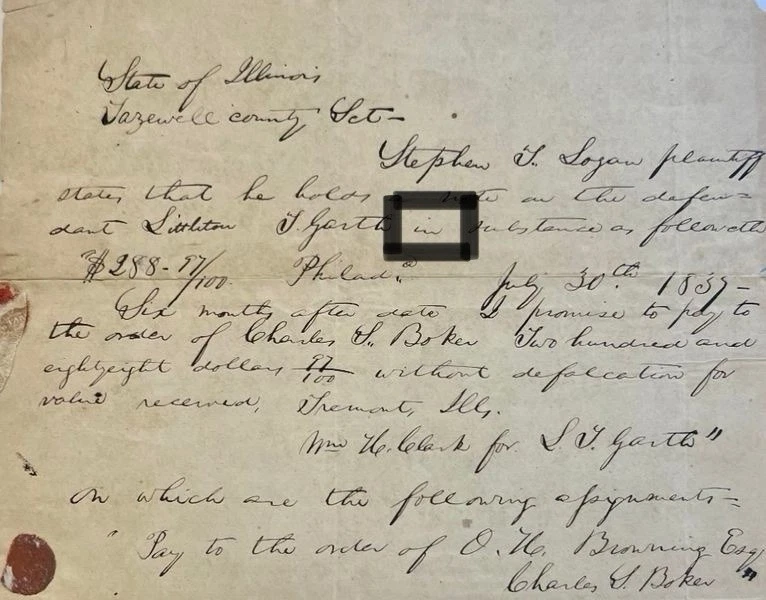 State of Illinois
Tazewell county Sct-
Stephen T. Logan plaintiff
states that he holds a note on the defen=
dant Littleton T. Garth in substance as followeth
"$288-97/100. Philada. July 30th 1837-
Six months after date I promise to pay to
the order of Charles S. Boker Two hundred and
eightyeight dollars 97/100 without defalcation for
value received, Tremont, Ills.
Wm H. Clark for L. T. Garth"
on which are the following assignments=
" Pay to the order of O. H. Browning Esq,
Charles S. Boker "